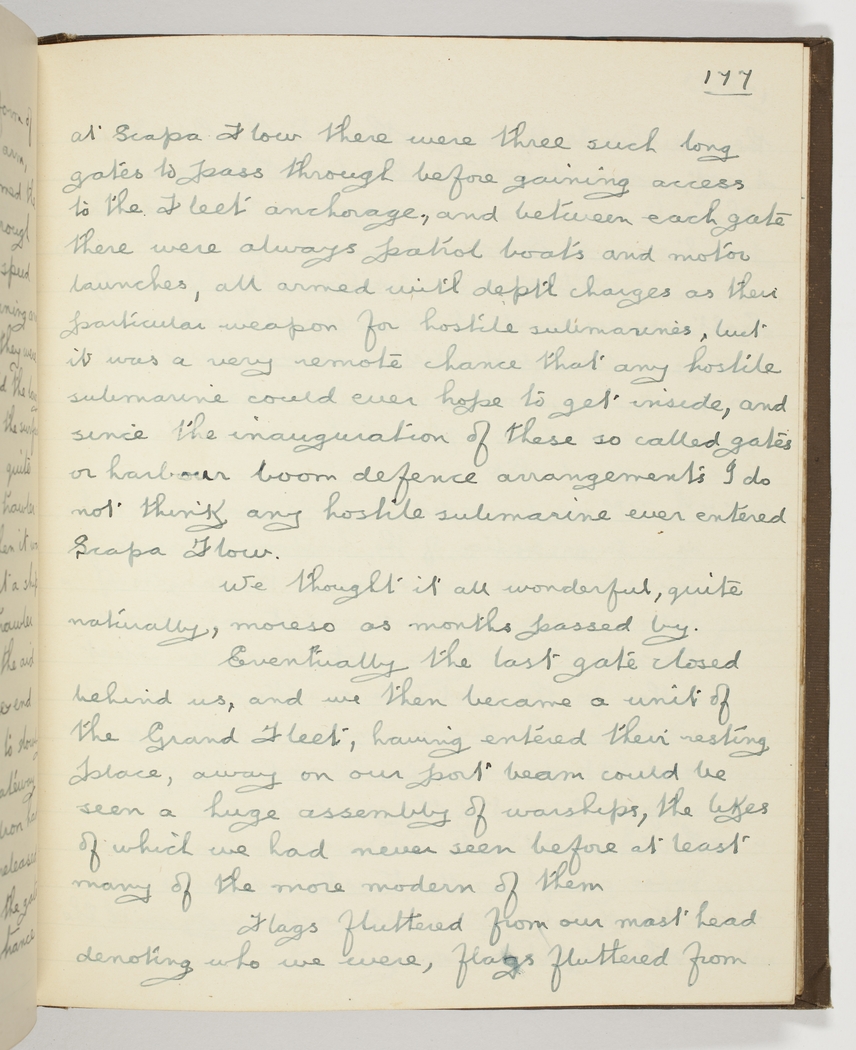 177
at Scapa Flow there were three such long
gates to pass through before gaining access
to the Fleet anchorage, and between each gate
there were always patrol boats and motor
launches, all armed with depth charges as their
particular weapon for hostile submarines, but
it was a very remote chance that any hostile
submarine could ever hope to get inside, and
since the inauguration of these so called gates
or harbour boom defence arrangements I do
not think any hostile submarine ever entered
Scapa Flow.
We thought it all wonderful, quite
naturally, moreso as months passed by.
Eventually the last gate closed
behind us, and we then became a unit of
the Grand Fleet, having entered their resting
place, away on our port beam could be
seen a huge assembly of warships, the likes
of which we had never seen before at least
many of the more modern of them
Flags fluttered from our mast head
denoting who we were, flags fluttered from